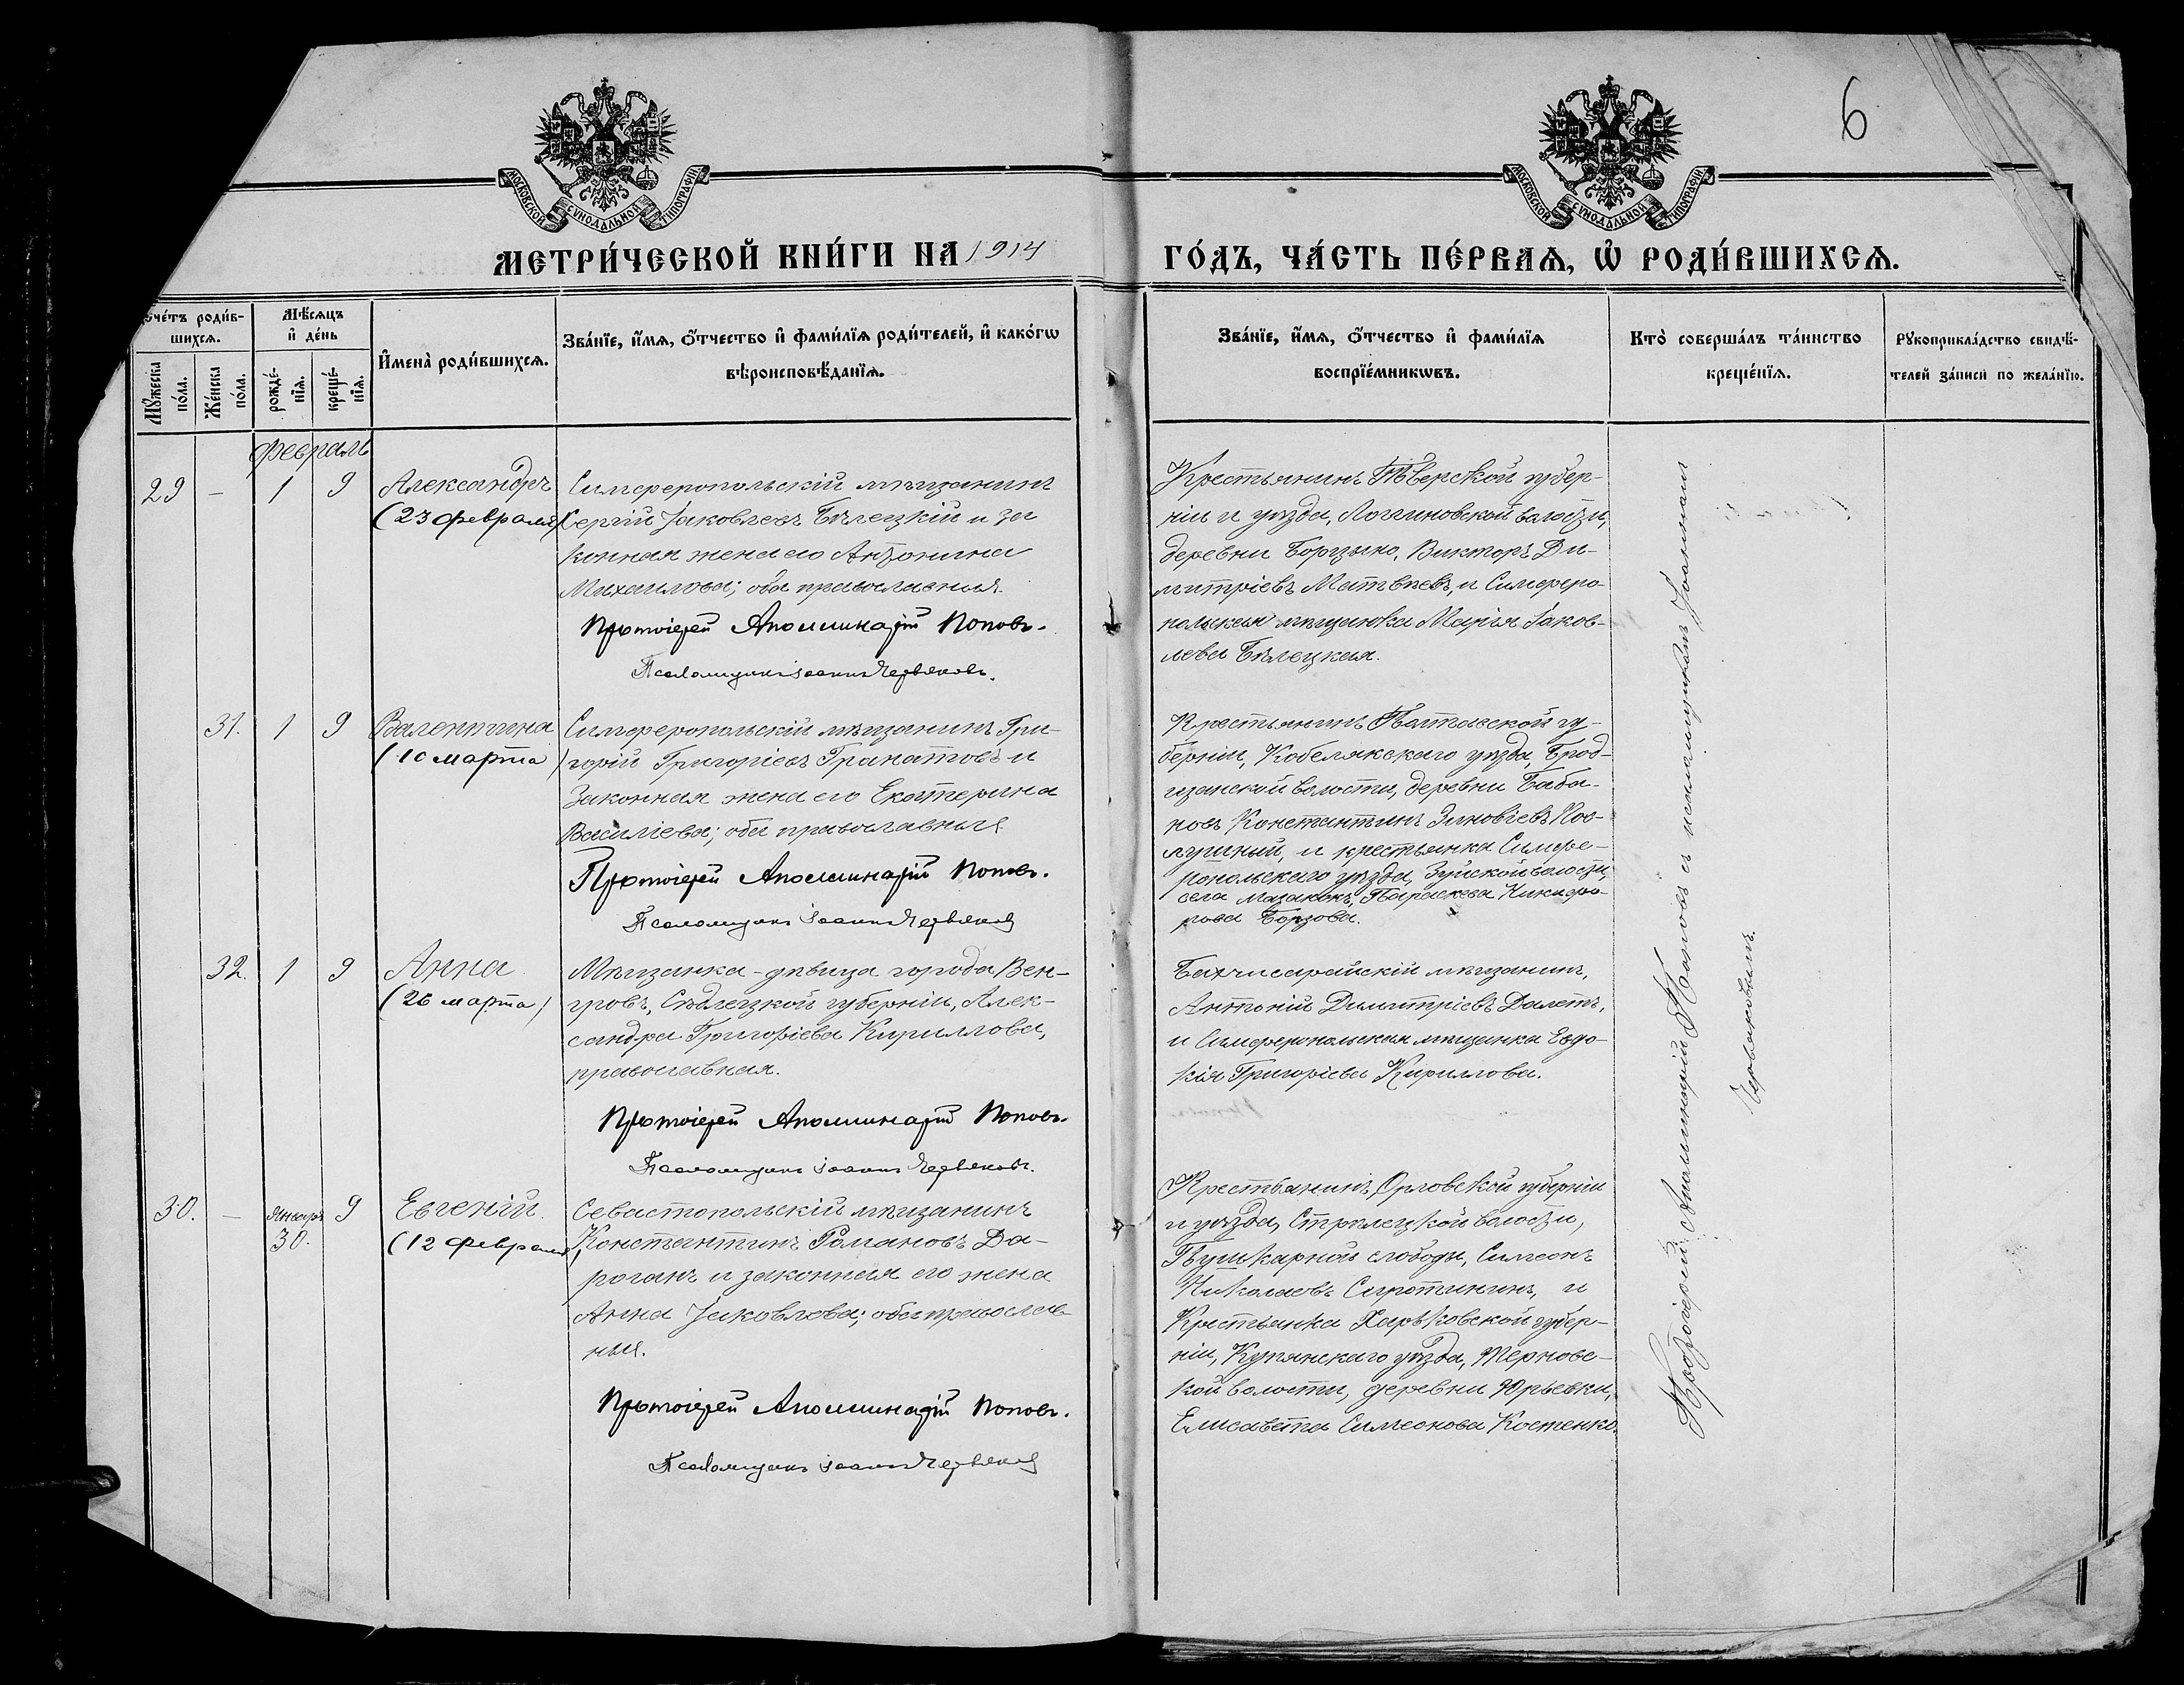 6
МОСКОВСКОЙ СѴНОДАЛЬНОЙ ТИПОГРАФІИ
МОСКОВСКОЙ СѴНОДАЛЬНОЙ ТИПОГРАФІИ
МЕТРИ́ЧЕСКОЙ КНИ́ГИ НА 1914
ГО́ДЪ, ЧА́СТЬ ПЕ́РВАѦ, Ѡ РОДИ́ВШИХСѦ.
счéтъ роди́в-
шихсѧ.
Мꙋ́жеска
по́ла.
Же́нска
по́ла.
Мѣ́сѧцъ
и҆ де́нь
рожде́-
нїѧ.
креще́-
нїѧ.
И҆мена̀ роди́вшихсѧ.
Зва́нїе, и҆́мѧ, ѻ҆́тчество и҆ фами́лїѧ роди́телей, и҆ како́гѡ
вѣроисповѣ́данїѧ.
Зва́нїе, и҆́мѧ, ѻ҆́тчество и҆ фами́лїѧ
воспрїе́мникѡвъ.
Кто̀ соверша́лъ та́инство
креще́нїѧ.
Рꙋкоприкла́дство свидѣ́-
телей за́писи по жела́нїю.
февраль
29 - 1 9
Александръ
(23 февраля)
Симферопольскій мѣщанинъ
Сергій Іаковлевъ Бѣлецкій и за
конная жена его Антонина
Михаилова; оба православныя.
Протоіерей Аполлинарій Поповъ.
Псаломщикъ Іоаннъ Червяковъ.
Крестьянинъ Тверской губер-
ніи и уѣзда, Логгиновской волости,
деревни Борзыно, Викторъ Ди-
митріевъ Матвѣевъ, и Симферо-
польская мѣщанка Марія Іаков-
лева Бѣлецкая.
31. 1 9
Валентина
(10 марта)
Симферопольскій мѣщанинъ Гри-
горій Григоріевъ Гранатовъ и
законная жена его Екатерина
Василіева; оба православныя.
Протоіерей Аполлинарій Поповъ.
Псаломщикъ Іоаннъ Червяковъ
Крестьянинъ Полтавской гу-
берніи, Кобелякскаго уѣзда, Брод-
щанской волости, деревни Баба-
новъ Константинъ Зиновіевъ
и крестьянка Симфе-
ропольскаго уѣзда, Зуйской волости,
села Мазанокъ, Параскева Никифо-
рова Борзова.
32. 1 9
Анна
(26 марта)
Мѣщанка-дѣвица города Вен-
гровъ, Сѣдлецкой губерніи, Алек-
сандра Григоріева Кириллова,
православная.
Протоіерей Аполлинарій Поповъ.
Псаломщикъ Іоаннъ Червяковъ.
Бахчисарайскій мѣщанинъ,
Антоній Димитріевъ Далетъ,
и Симферопольская мѣщанка Евдо-
кія Григоріева Кириллова.
30. - Январь 9
30.
Евгеній
(12 февраля)
Севастопольскій мѣщанинъ
Константинъ Романовъ Да-
роганъ и законная его жена
Анна Іаковлева; оба православ-
ныя.
Протоіерей Аполлинарій Поповъ.
Псаломщикъ Іоаннъ Червяковъ
Крестьянинъ Орловской губерніи
и уѣзда, Стрѣлецкой волости,
Пушкарной слободы, Симеонъ
Николаевъ Сиротининъ, и
Крестьянка Харьковской губер-
ніи, Купянскаго уѣзда, Тернов-
кой волости, деревни Юрьевки,
Елисавета Симеонова Костенко.
Протоіерей Аполлинарій Поповъ съ псаломщикомъ Іоанномъ
Червяковымъ.